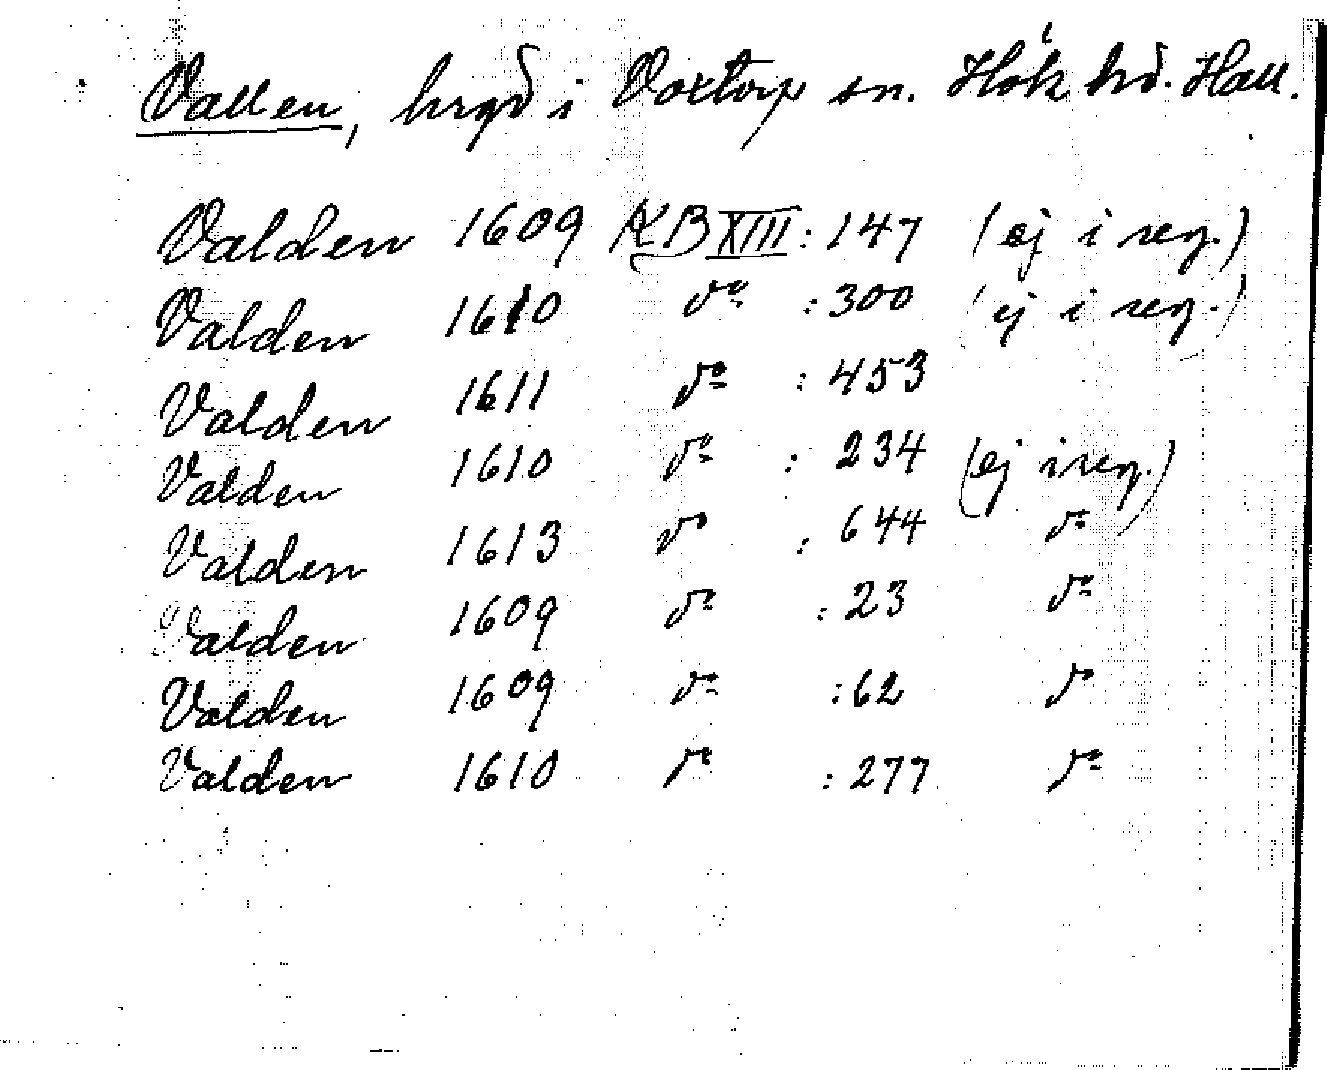 Vallen, hrgd i Voxtorp sn. Hök hd. Hall.
Valden 1609 KB XIII: 147 (ej i reg.)
Valden 1610 do : 300 (ej i reg.)
Valden 1611 do : 453
Valden 1610 do : 234 (ej i reg.)
Valden 1613 do : 644 do
Valden 1609 do : 23 do
Valden 1609 do : 62 do
Valden 1610 do : 277 do